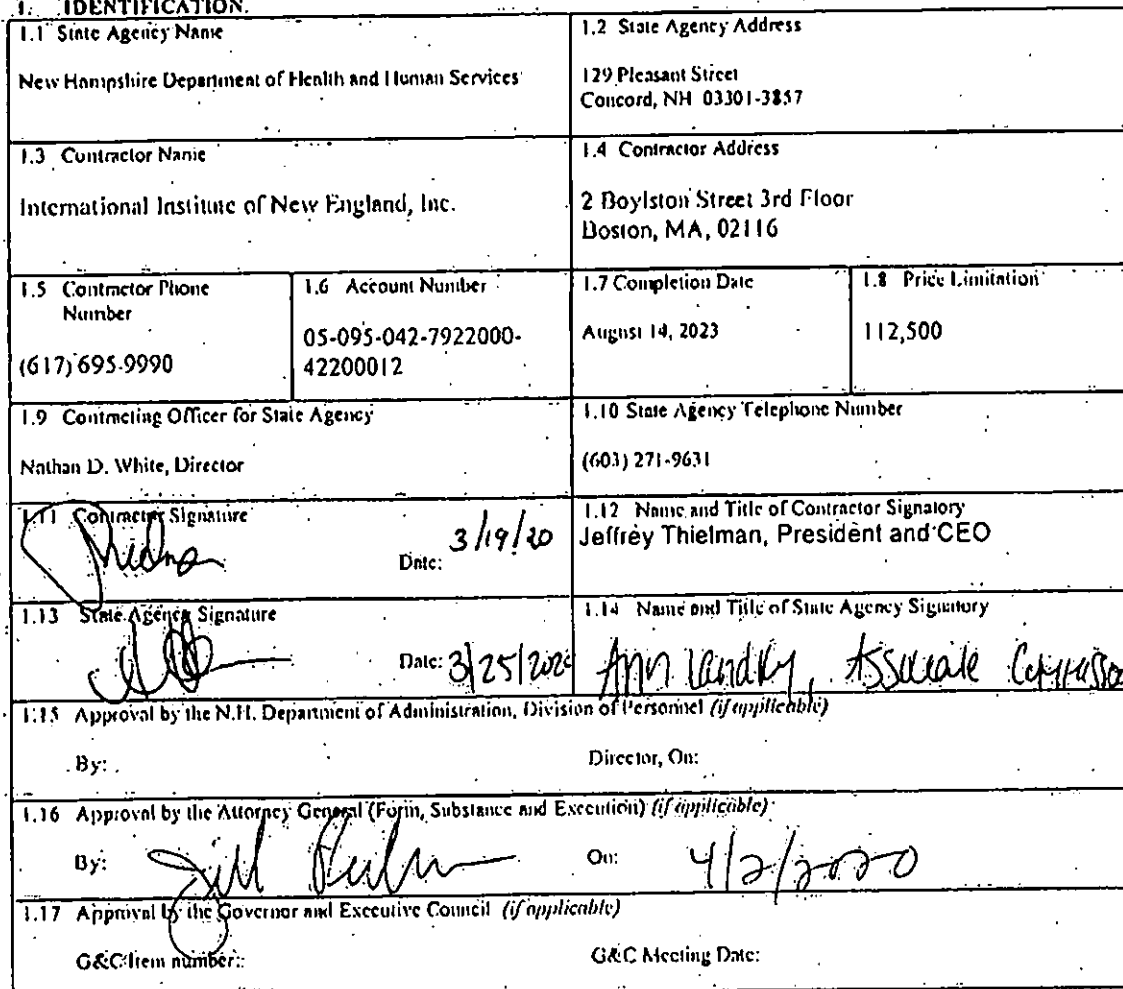 1. IDENTIFICATION.
1.1 State Agency Name
New Hampshire Department of Health and Human Services
1.2 State Agency Address
129 Pleasant Street
Concord, NH 03301-3857
1.3 Contractor Name
International Institute of New England, Inc.
1.4 Contractor Address
2 Boylston Street 3rd Floor
Boston, MA, 02116
1.5 Contractor Phone
Number
(617) 695-9990
1.6 Account Number
05-095-042-7922000-
42200012
1.7 Completion Date
August 14, 2023
1.8 Price Limitation
112,500
1.9 Contracting Officer for State Agency
Nathan D. White, Director
1.10 State Agency Telephone Number
(603) 271-9631
1.11 Contractor Signature
Date: 3/19/20
1.12 Name and Title of Contractor Signatory
Jeffrey Thielman, President and CEO
1.13 State Agency Signature
Date: 3/25/2020
1.14 Name and Title of State Agency Signatory
Ann Landry, Associate
1.15 Approval by the N.H. Department of Administration, Division of Personnel (if applicable)
By: Director, On:
1.16 Approval by the Attorney General (Form, Substance and Execution) (if applicable)
By: On: 4/2/2020
1.17 Approval by the Governor and Executive Council (if applicable)
G&C Item number: G&C Meeting Date: